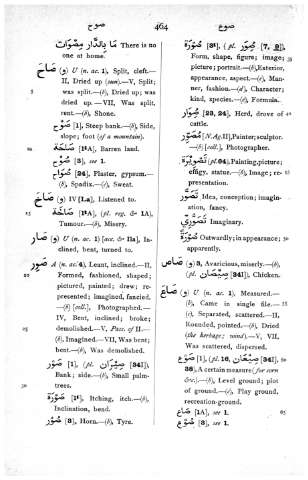 صوح
464
صوع
مَا بِالدَّارِ مِصْوَات There is no
one at home.
صَاحَ (و) U (n. ac. 1), Split, cleft.—
II, Dried up (sun).—V, Split;
was split.—(b), Dried up; was
dried up.—VII, Was split,
rent.—(b), Shone.
صُوح [1], Steep bank.—(b), Side,
slope; foot (of a mountain).
[1tA], Barren land.
[3], see 1.
[24], Plaster, gypsum.—
(b), Spadix.—(c), Sweat.
(و) IV [I.a], Listened to.
[1tA], (pl. reg. d- 1A),
Tumour.—(b), Misery.
صَار (و) U (n. ac. 1) [acc. d- IIa], In-
clined, bent, turned to.
صَوِرَ A (n. ac. 4), Leant, inclined.—II,
Formed, fashioned, shaped;
pictured, painted; drew; re-
presented; imagined, fancied.
—(b) [coll.], Photographed.—
IV, Bent, inclined; broke;
demolished.—V, Pass. of II.—
(b), Imagined.—VII, Was bent;
bent.—(b), Was demolished.
صَوْر [1], (pl. صِيرَان [34I]),
Bank; side.—(b), Small palm-
trees.
صَوْرَة [1t], Itching, itch.—(b),
Inclination, bend.
صُور [3], Horn.—(b), Tyre.
صُورَة [3t], (pl. صُوَر [7, 9]),
Form, shape, figure; image;
picture; portrait.—(b), Exterior,
appearance, aspect.—(c), Man-
ner, fashion.—(d), Character;
kind, species.—(e), Formula.
[23, 24], Herd, drove of
cattle.
مُصَوِّر [N.Ag.II], Painter; sculptor.
—(b) [coll.], Photographer.
pl. 64), Painting, picture;
effigy, statue.—(b), Image; re-
presentation.
تَصَوُّر Idea, conception; imagin-
ation, fancy.
تَصَوُّرِيّ Imaginary.
Outwardly; in appearance;
apparently.
صَاص (و) 3, Avaricious, miserly.—(b),
(pl. صِيصَان [34I]), Chicken.
صَاعَ (و) U (n. ac. 1), Measured.—
(b), Came in single file.—
(c), Separated, scattered.—II,
Rounded, pointed.—(b), Dried
(the herbage; wind).—V, VII,
Was scattered, dispersed.
صَوْع [1], (pl. 16, صِيعَان [34I],
36), A certain measure (for corn
&c.).—(b), Level ground; plot
of ground.—(c), Play ground,
recreation-ground.
صَاع [1A], see 1.
صُوع [3], see 1.